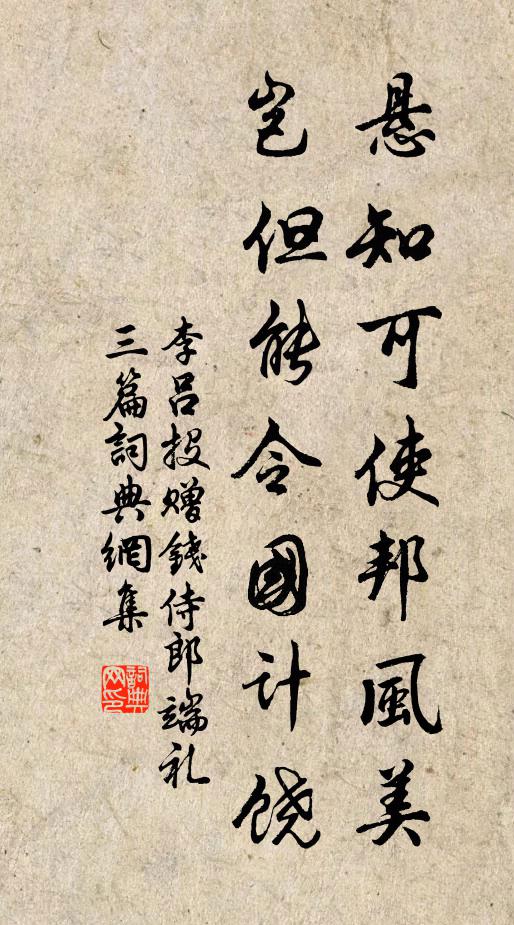 悬知可使邦風美
岂但能令國计饶
李吕投赠錢侍郎端礼
三篇詞典網集
詞典
网印